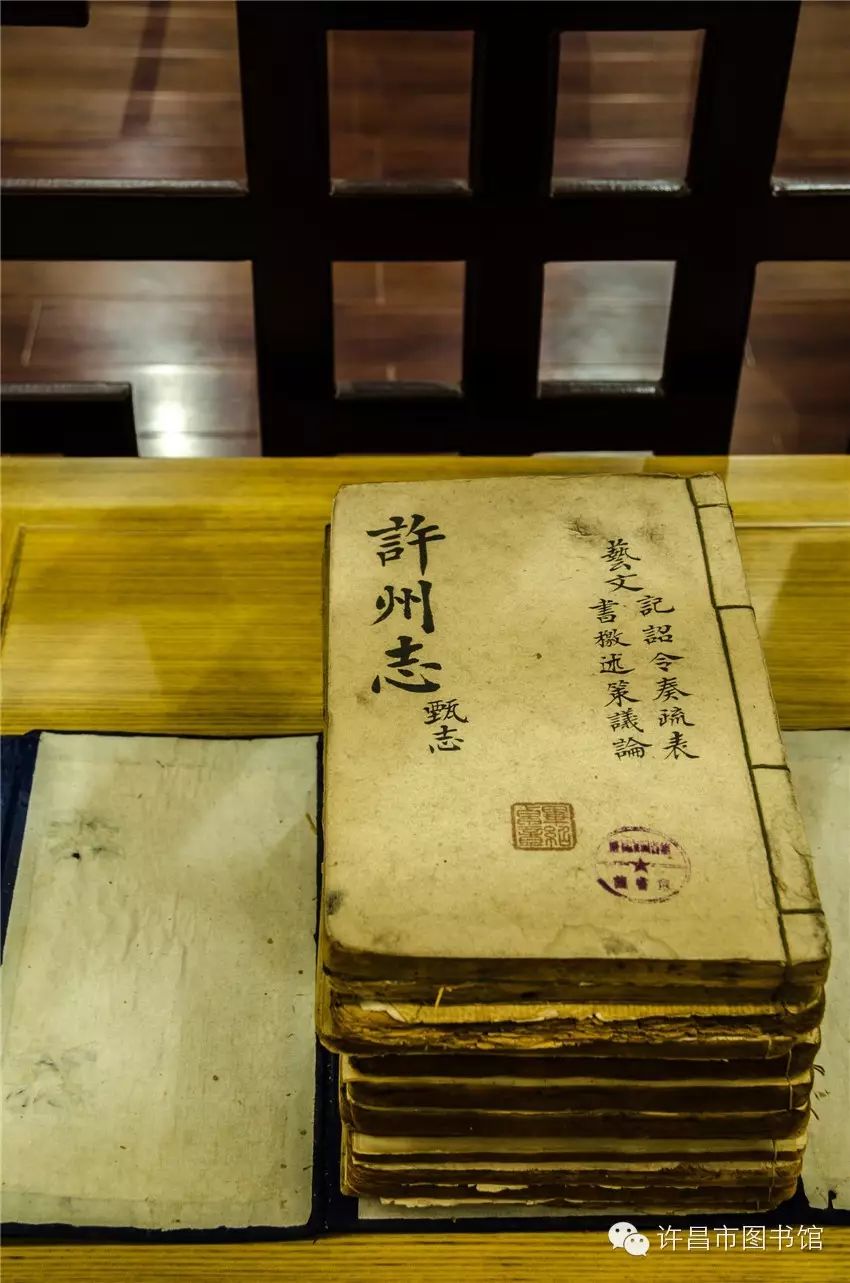 許州志
甄志
藝文
記詔令奏疏表
書檄述策議論
许昌市图书馆